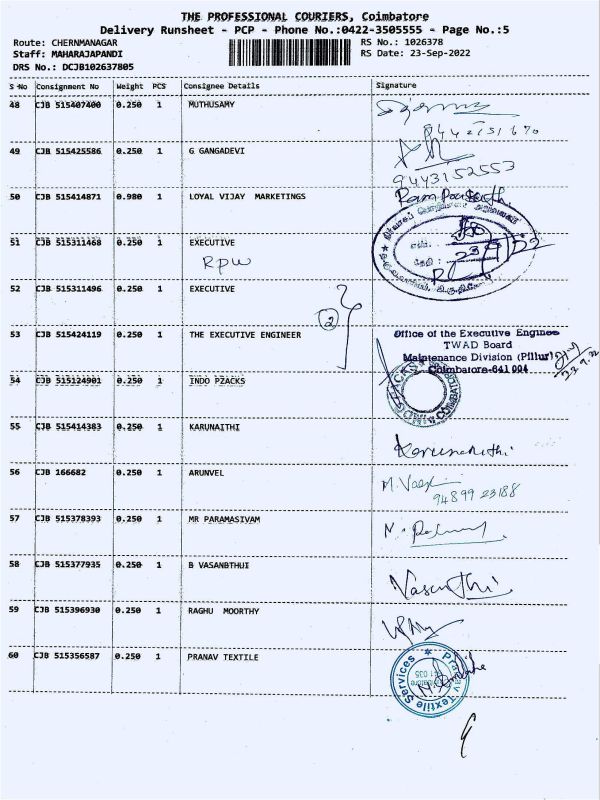 THE PROFESSIONAL COURIERS, Coimbatore
Delivery Runsheet - PCP - Phone No.:0422-3505555 - Page No.:5
Route: CHERNMANAGAR RS No.: 1026378
Staff: MAHARAJAPANDI RS Date: 23-Sep-2022
DRS No.: DCJB102637805
S No Consignment No Weight PCS Consignee Details Signature
48 CJB 515407400 0.250 1 MUTHUSAMY
49 CJB 515425586 0.250 1 G GANGADEVI
9443152553
50 CJB 515414871 0.980 1 LOYAL VIJAY MARKETINGS
51 CJB 515311468 0.250 1 EXECUTIVE
RPW
52 CJB 515311496 0.250 1 EXECUTIVE
2
53 CJB 515424119 0.250 1 THE EXECUTIVE ENGINEER
Office of the Executive Engineer
TWAD Board
Maintenance Division (Pillur)
Coimbatore-641 004
54 CJB 515124901 0.250 1 INDO PZACKS
55 CJB 515414383 0.250 1 KARUNAITHI
56 CJB 166682 0.250 1 ARUNVEL
94899 23188
57 CJB 515378393 0.250 1 MR PARAMASIVAM
58 CJB 515377935 0.250 1 B VASANBTHUI
Vasunthi
59 CJB 515396930 0.250 1 RAGHU MOORTHY
60 CJB 515356587 0.250 1 PRANAV TEXTILE
Pranav Textile Services